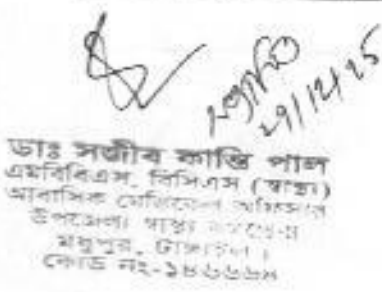 সত্যায়িত
29/12/25
ডাঃ সজীব কান্তি পাল
এমবিবিএস, বিসিএস (স্বাস্থ্য)
আবাসিক মেডিকেল অফিসার
উপজেলা স্বাস্থ্য কমপ্লেক্স
মধুপুর, টাঙ্গাইল।
কোড নং-১৪৬৬৬৯